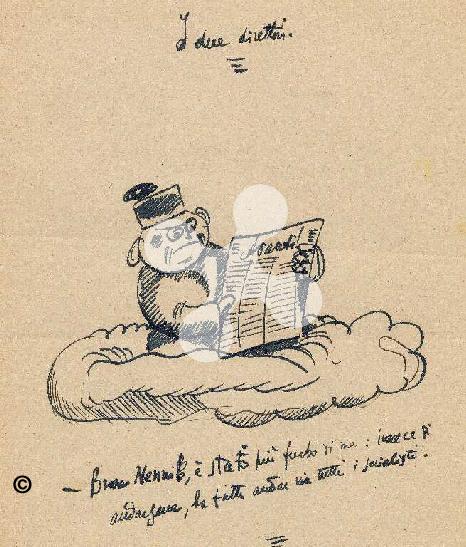 I due direttori.
Avanti
©
– Bravo Nenni, è stato più furbo di me : invece di
andarsene, ha fatto andar via tutti i socialisti.